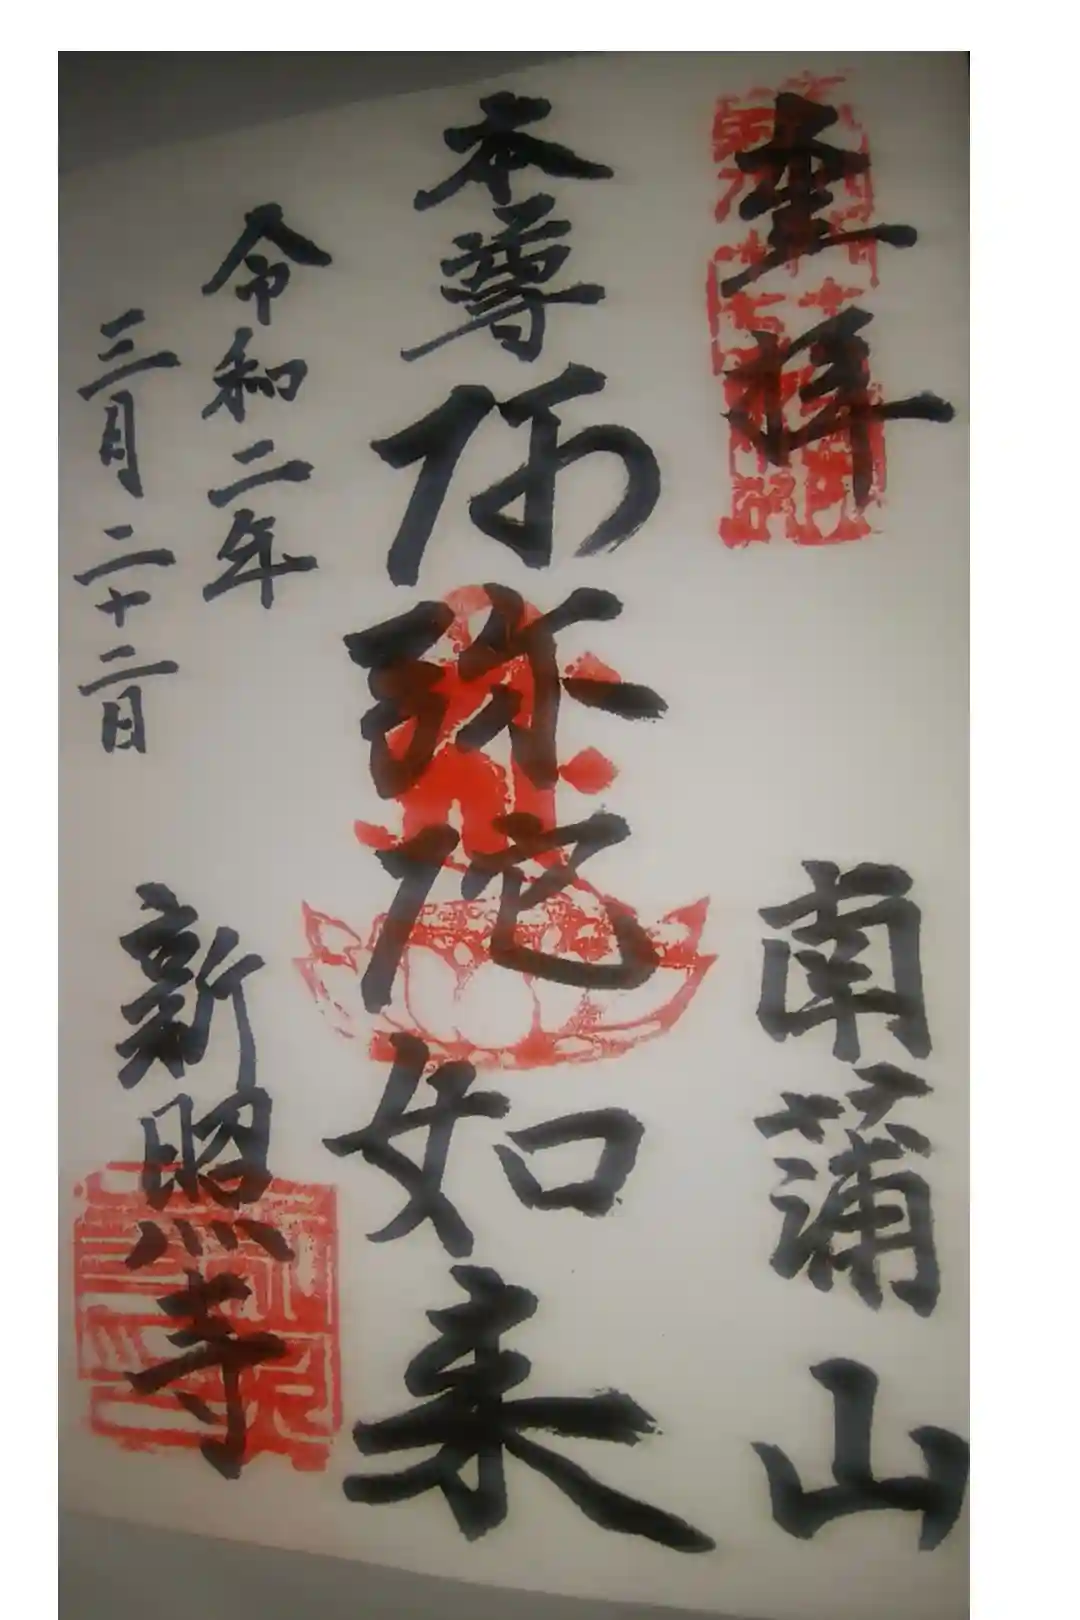 奉拝
南蒲山
本尊 阿弥陀如来
令和二年
三月二十二日
新照寺